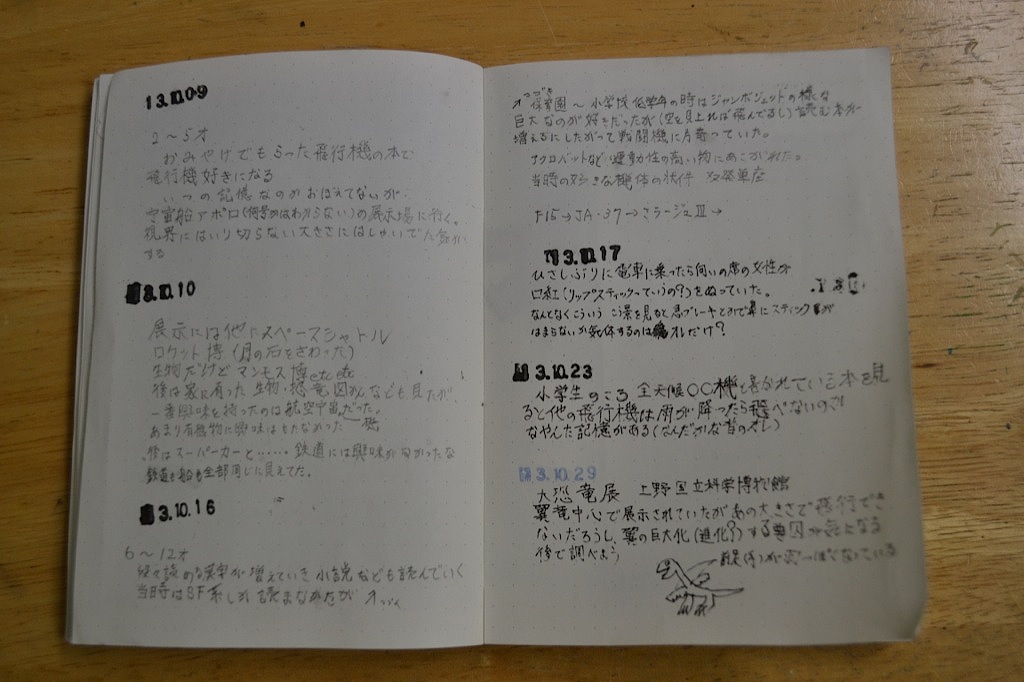 13.10.09
2〜5才
おみやげでもらった飛行機の本で
飛行機好きになる
いつの記憶なのかおぼえてないが、
宇宙船アポロ(何号かはわからない)の展示場に行く。
視界にはいり切らない大きさにはしゃいでた気が
する
13.10.10
展示には他にスペースシャトル
ロケット博(月の石をさわった)
生物だけど マンモス博etc etc
後は家に有った生物・恐竜図かんなども見たが、
一番興味を持ったのは航空宇宙だった。
あまり有機物に興味はもたなかった
後はスーパーカーと…… 鉄道には興味がなかったな
鉄道も船も全部同じに見えてた。
13.10.16
6〜12才
段々読める漢字が増えていき 小説なども読んでいく
当時はSF系しか読まなかったが
つづき
保育園〜小学校低学年の時はジャンボジェットの様な
巨大なのが好きだったが(空を見上れば飛んでるし)読む本が
増えるにしたがって戦闘機に片寄っていた。
アクロバットなど運動性の高い物にあこがれた。
当時の好きな機体の条件 双発単座
F15→JA・37→ミラージュⅢ→
13.10.17
ひさしぶりに電車に乗ったら向いの席の女性が
口紅(リップスティックっていうの?)をぬっていた。
なんとなくこういう景を見ると急ブレーキとかで鼻にスティックが
はまらないか気体するのはオレだけ?
13.10.23
小学生のころ 全天候〇〇機と書かれている本を見
ると他の飛行機は雨が降ったら飛べないのか
なやんだ記憶がある(なんだかな昔のオレ)
13.10.29
大恐竜展 上野国立科学博物館
翼竜中心で展示されていたがあの大きさで飛行でき
ないだろうし、翼の巨大化(進化?)する要因が気になる
後で調べよう